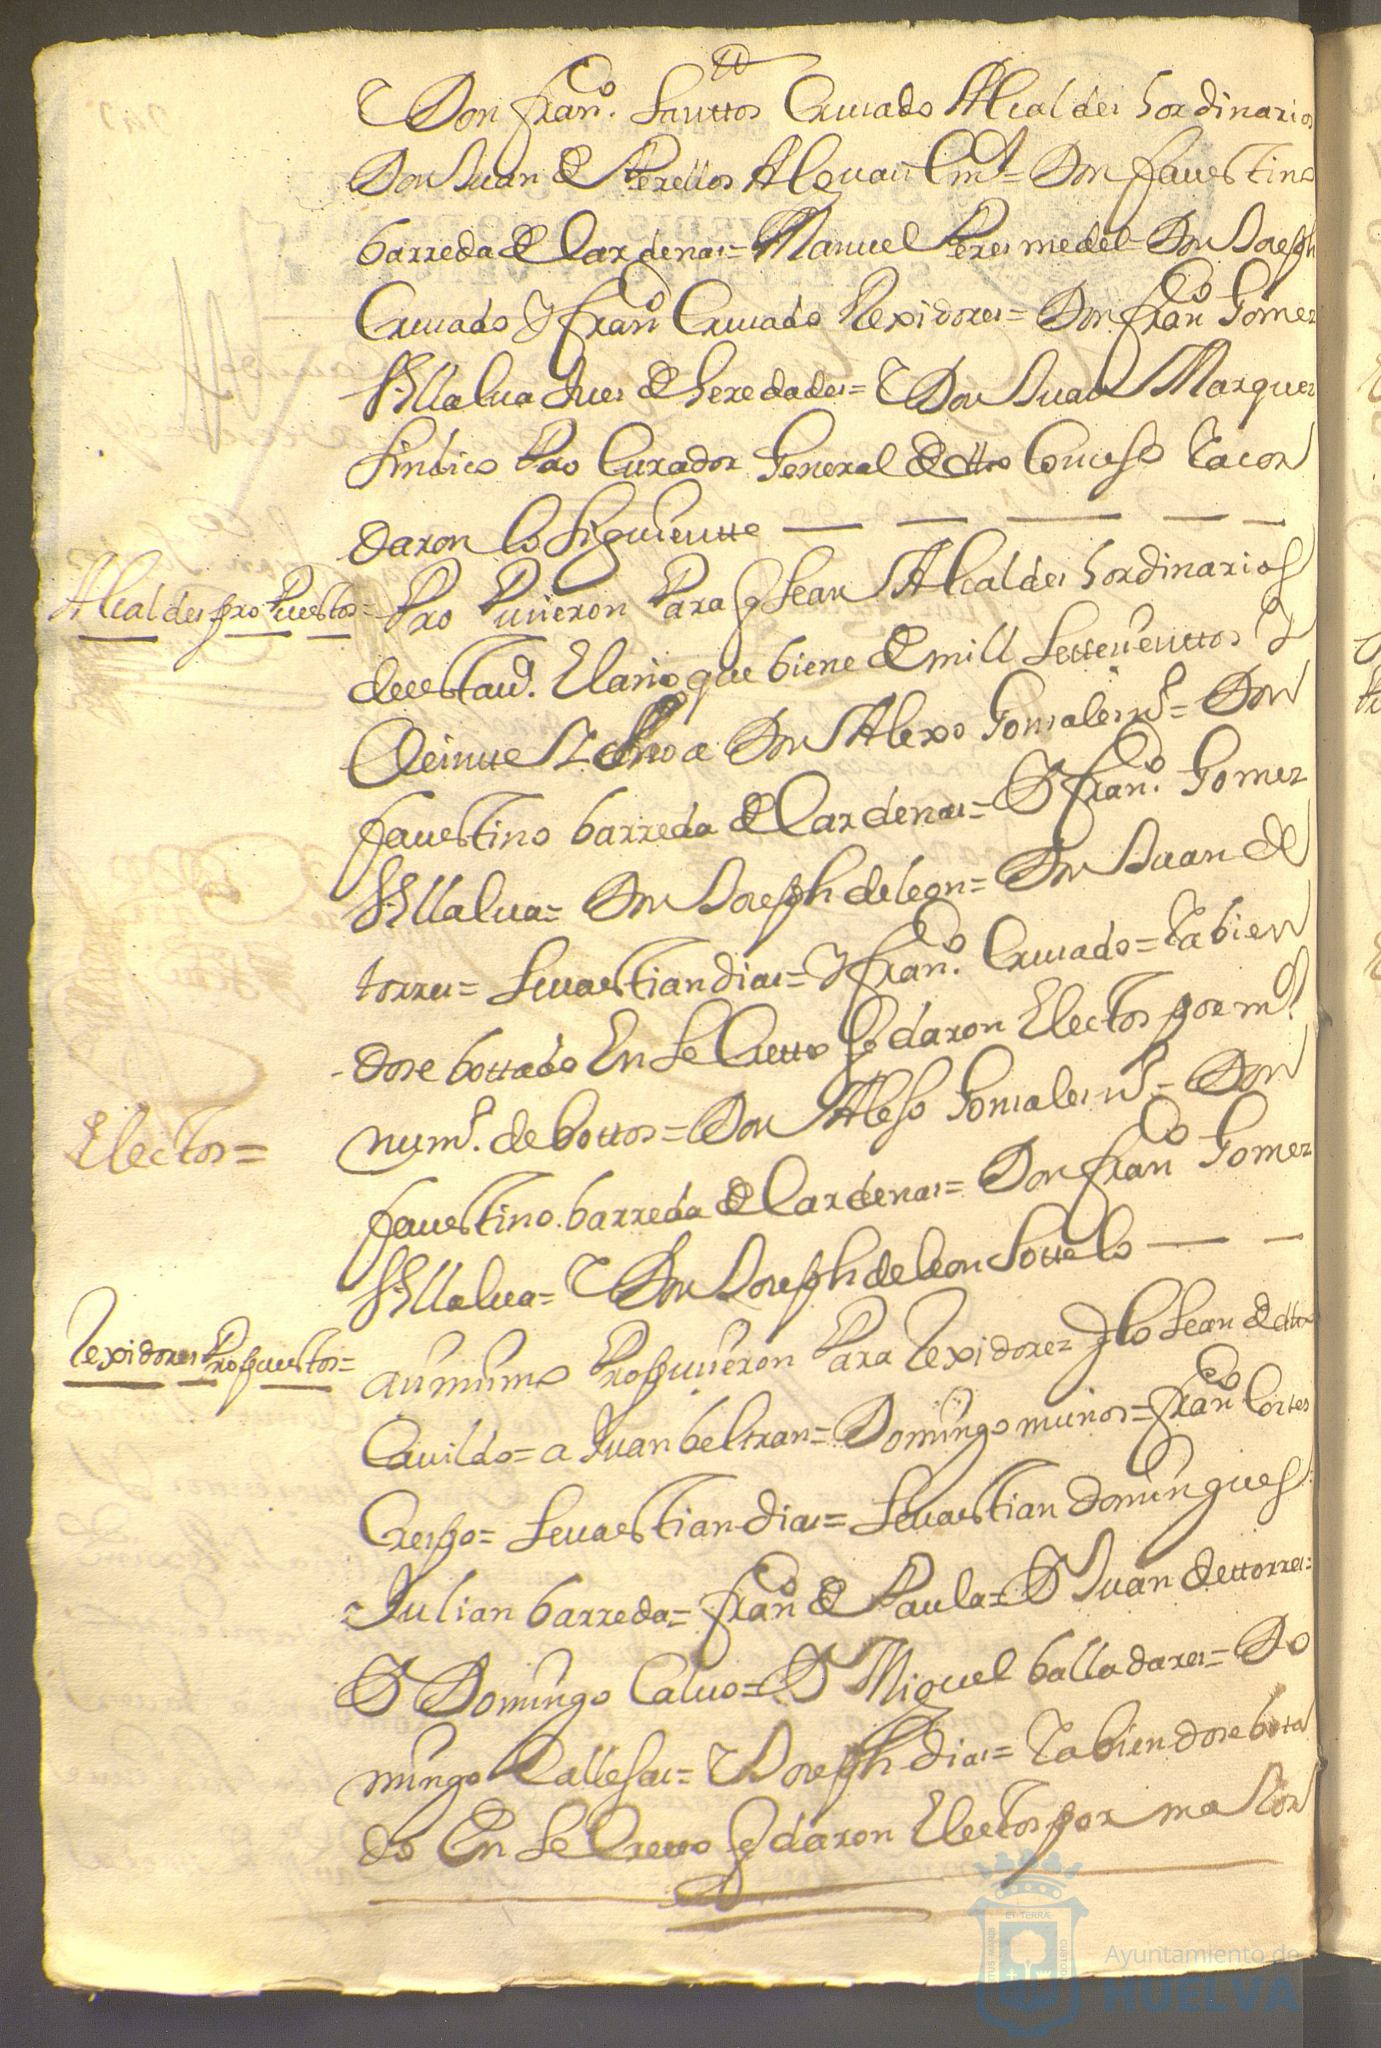 Y Don Fran.co Santtos Cruzado Alcaldes hordinarios
Don Juan de Perellos = Don faustino
barreda de Cardenas = Manuel Peres medel = Don Joseph
Cruzado Y fran.co Cruzado Rexidores = Don fran.co Gomez
Villalua Jues de heredades = Y Don Juan Marquez
sindico Procurador General de dtto Consejo Y acor
daron lo siguientte
Alcaldes propuestos =
Propusieron Para q sean Alcaldes hordinarios
de esta V.a El año que biene de mill settesienttos y
veintte Don Alexo Gonsales = Don
faustino barreda de Cardenas = D fran.co Gomez
Villalua = Don Joseph de leon = Don Juan de
torres = Seuastian dias = Y fran.co Cruzado = Y abien
dose bottado En secretto q daron Electos por m.or
Electos =
num.o de bottos = Don Alexo Gonsales = Don
faustino barreda de Cardenas = Don fran.co Gomez
Villalua = Y Don Joseph de leon Sottelo
Rexidores Propuestos =
asimismo Propusieron Para Rexidores q lo sean de dtto
Cauildo = a Juan beltran = Domingo munos = fran.co Cortes
Crespo = Seuastian dias = Seuastian domingues =
Julian barreda = fran.co de Paula = D Juan de ttorres =
D Domingo Caluo = D Miguel balladares = Do
mingo = Y Joseph dias = Y abiendose bota
do En secretto q daron Electos por maior
Ayuntamiento de
HUELVA